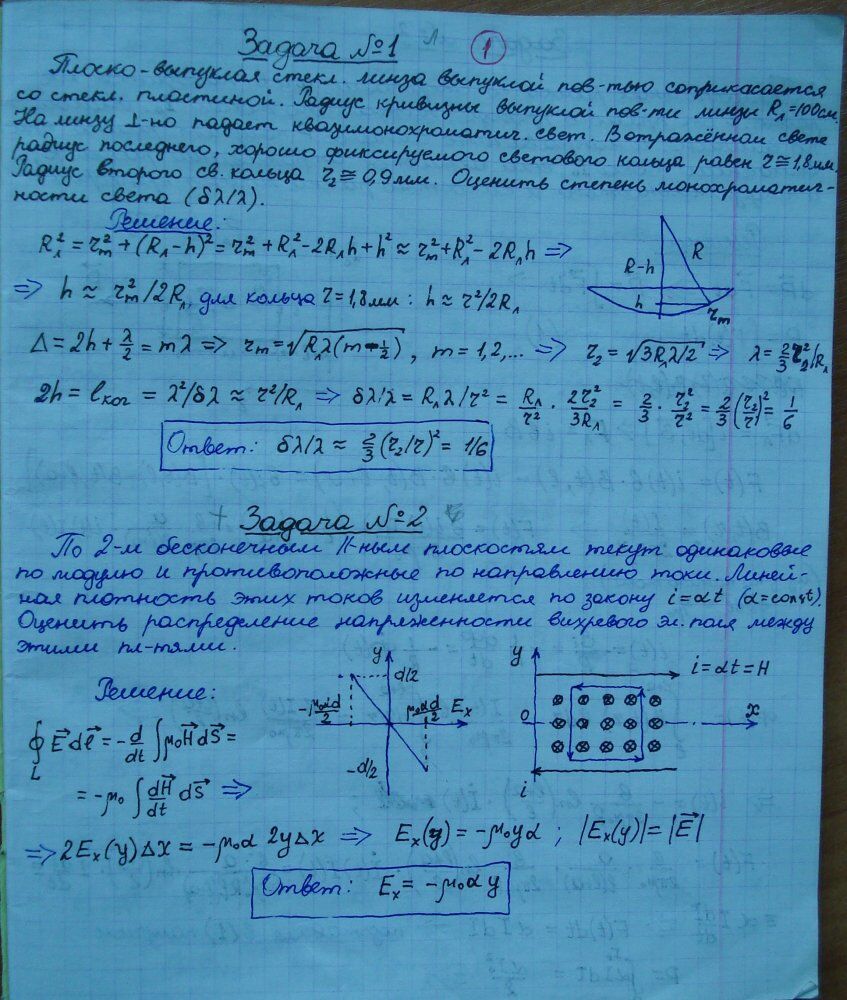 Задача №1
1
Плоско-выпуклая стекл. линза выпуклой пов-тью соприкасается
со стекл. пластиной. Радиус кривизны выпуклой пов-ти линзы Rл=100см.
На линзу ⊥-но падает квазимонохроматич. свет. В отражённом свете
радиус последнего, хорошо фиксируемого светового кольца равен r≅1,8мм.
Радиус второго св. кольца r₂≅0,9мм. Оценить степень монохроматич-
ности света (δλ/λ).
Решение:
Rл²=rm²+(Rл-h)²=rm²+Rл²-2Rлh+h²≈rm²+Rл²-2Rлh ⇒
R
R-h
h
rm
⇒ h≈rm²/2Rл, для кольца r=1,8мм: h≈r²/2Rл
Δ=2h+λ/2=mλ ⇒ rm=√(Rлλ(m-1/2)), m=1,2,... ⇒ r₂=√(3Rлλ/2) ⇒ λ=2/3 r₂²/Rл
2h=lког=λ²/δλ≈r²/Rл ⇒ δλ/λ=Rлλ/r²=Rл/r²·2r₂²/3Rл=2/3·r₂²/r²=2/3(r₂/r)²=1/6
Ответ: δλ/λ≈2/3(r₂/r)²=1/6
Задача №2
По 2-м бесконечным ||-ным плоскостям текут одинаковые
по модулю и противоположные по направлению токи. Линей-
ная плотность этих токов изменяется по закону i=αt (α=const).
Оценить распределение напряженности вихревого эл. поля между
этими пл-тями.
Решение:
y
d/2
-μ₀αd/2
μ₀αd/2
Ex
-d/2
y
i=αt=H
0
x
i
∮L E⃗dl⃗=-d/dt∫μ₀H⃗dS⃗=
=-μ₀∫dH⃗/dt dS⃗ ⇒
⇒2Ex(y)Δx=-μ₀α 2yΔx ⇒ Ex(y)=-μ₀yα; |Ex(y)|=|E⃗|
Ответ: Ex=-μ₀αy